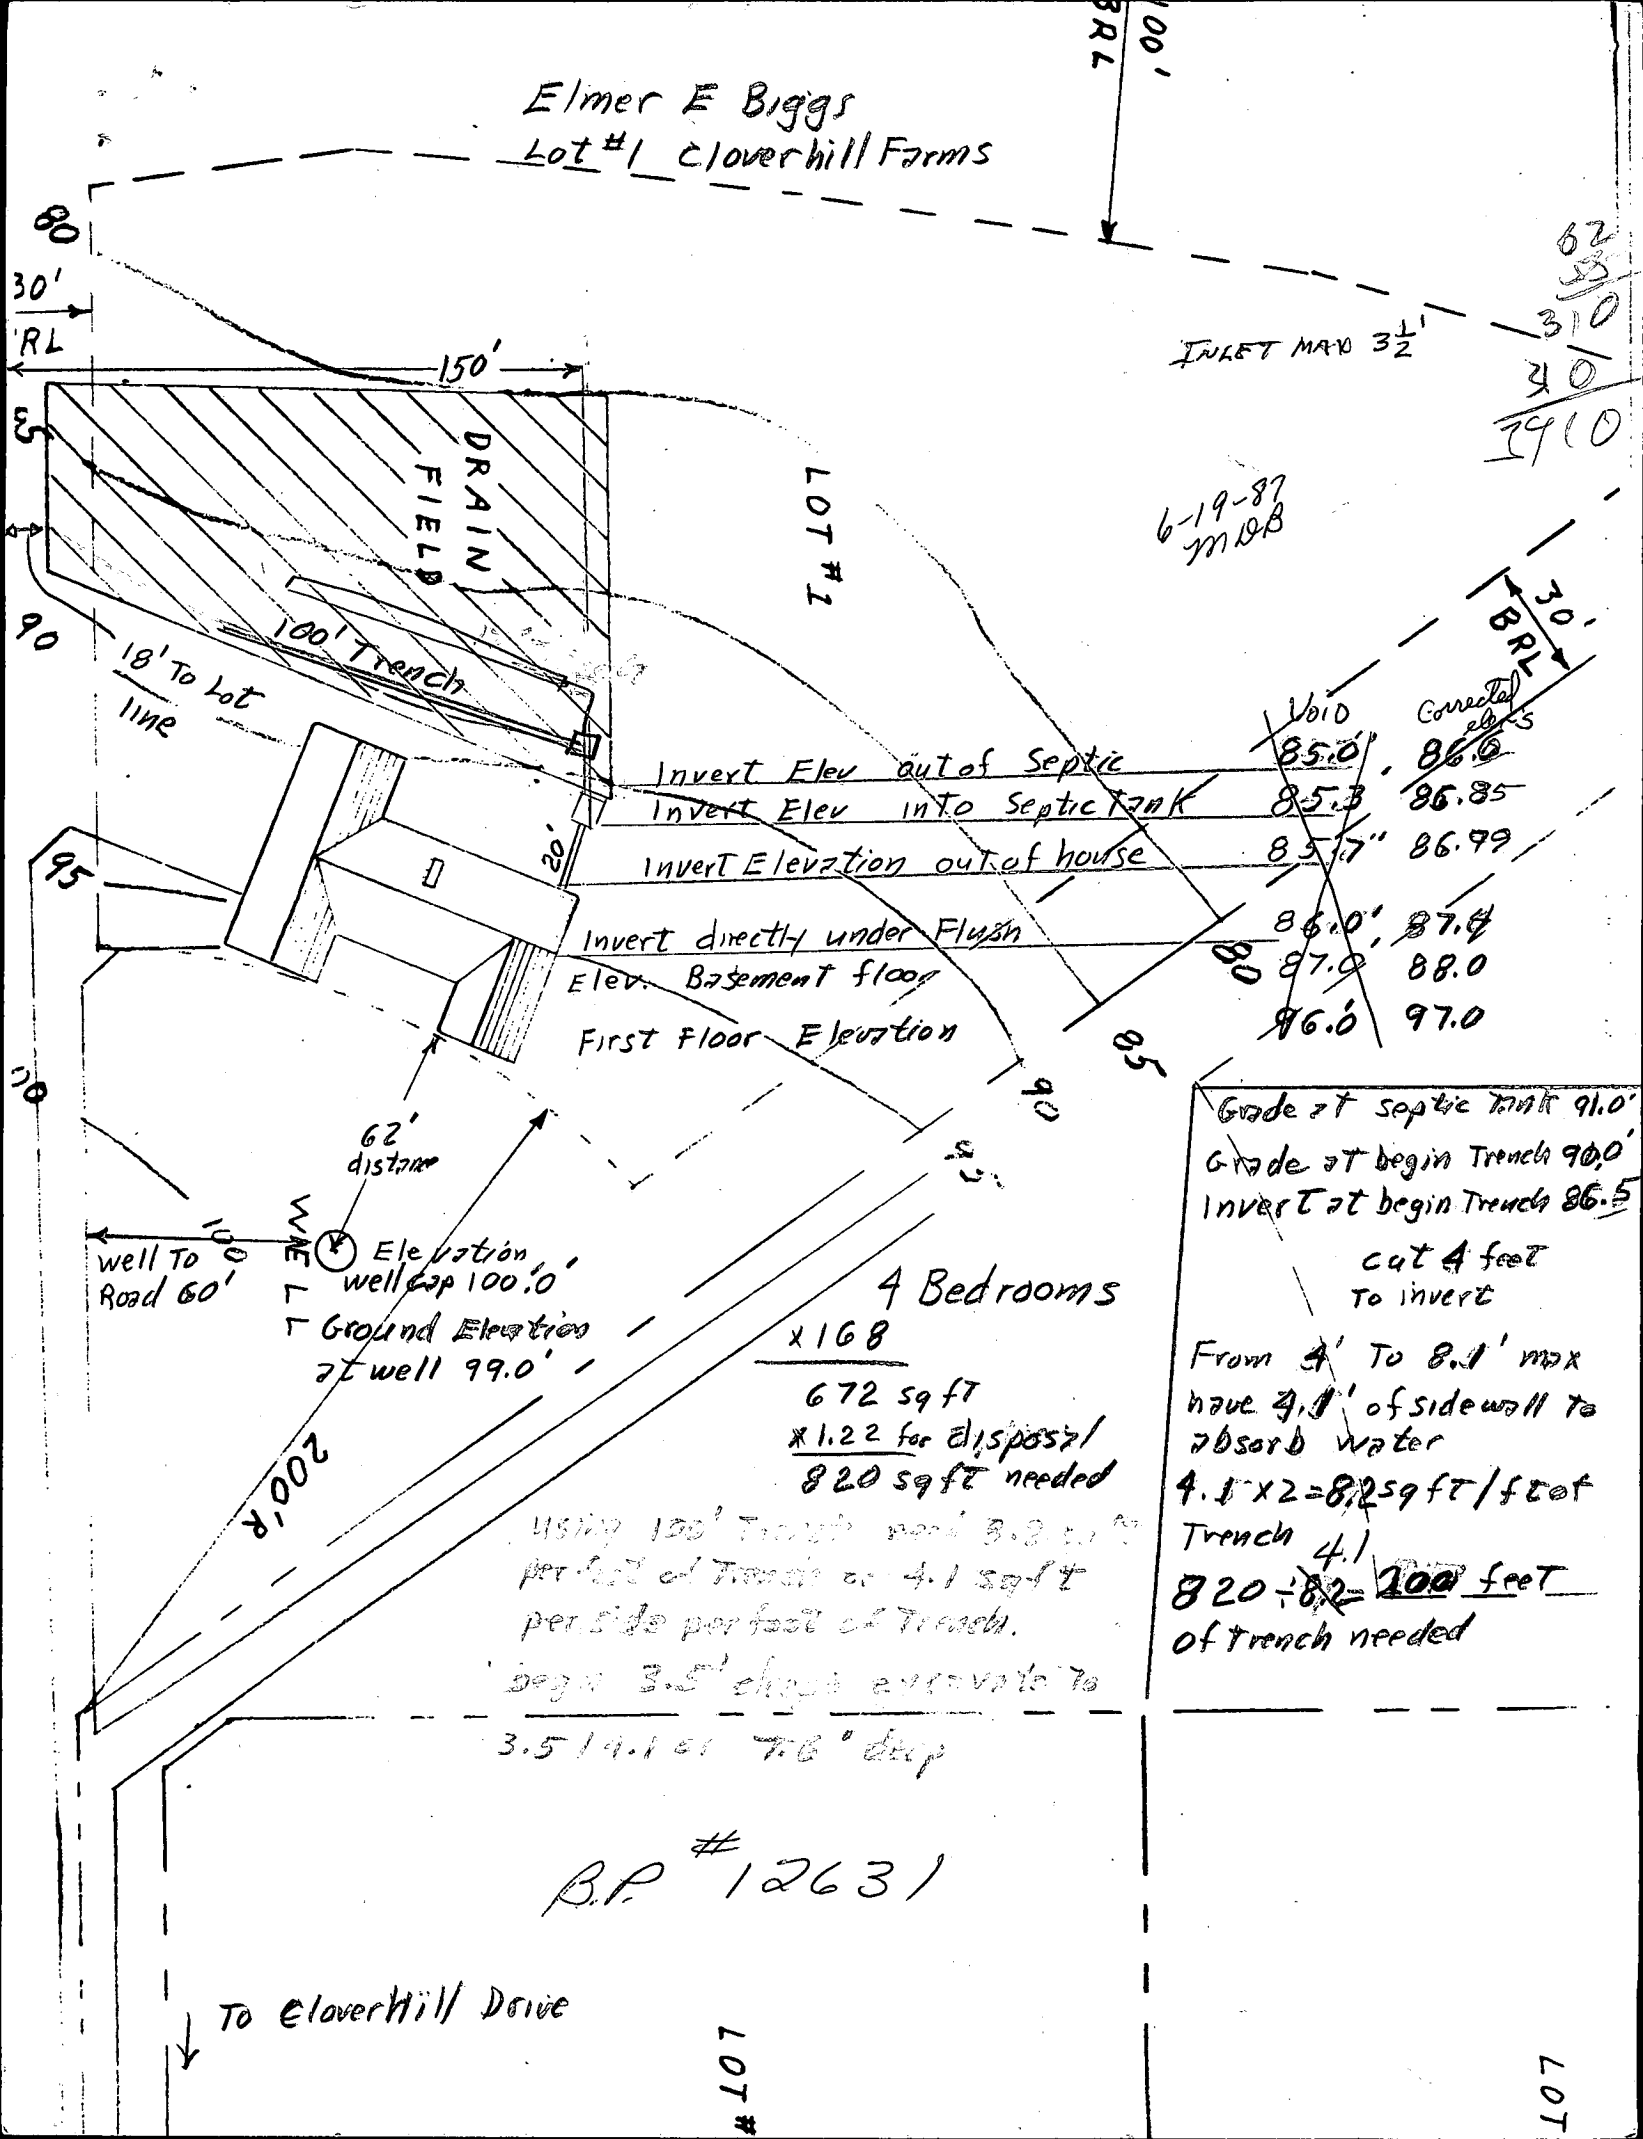 100'
BRL
Elmer E Biggs
Lot #1 Cloverhill Farms
80
30'
RL
150'
INLET MAX 3½'
62
310
DRAIN
FIELD
LOT #1
6-19-87
MDB
90
18' To Lot
line
100' Trench
30'
BRL
Void Corrected
elev's
Invert Elev out of Septic 85.0' 86.6
Invert Elev into Septic Tank 85.3 86.85
Invert Elevation out of house 85.7" 86.99
Invert directly under Flush 86.0' 87.4
Elev. Basement floor 87.0' 88.0
First Floor Elevation 96.0' 97.0
20'
95
80
85
90
62'
distance
WELL
100
well To
Road 60'
Elevation
well cap 100.0'
Ground Elevation
at well 99.0'
200'R
4 Bedrooms
x168
672 sq ft
x1.22 for disposal
820 sq ft needed
Using 100' Trench need 8.2 sq ft
per foot of Trench or 4.1 sq ft
per side per foot of Trench.
begin 3.5' excavate To
3.5 / 4.1 or 7.6' deep
Grade at septic Tank 91.0'
Grade at begin Trench 90.0'
Invert at begin Trench 86.5
cut 4 feet
To invert
From 4' To 8.1' max
have 4.1' of sidewall to
absorb water
4.1 x2=8.2 sq ft/ft of
Trench
4.1
820÷8.2= 200 feet
of trench needed
B.P. #12631
To CloverHill Drive
LOT #
LOT